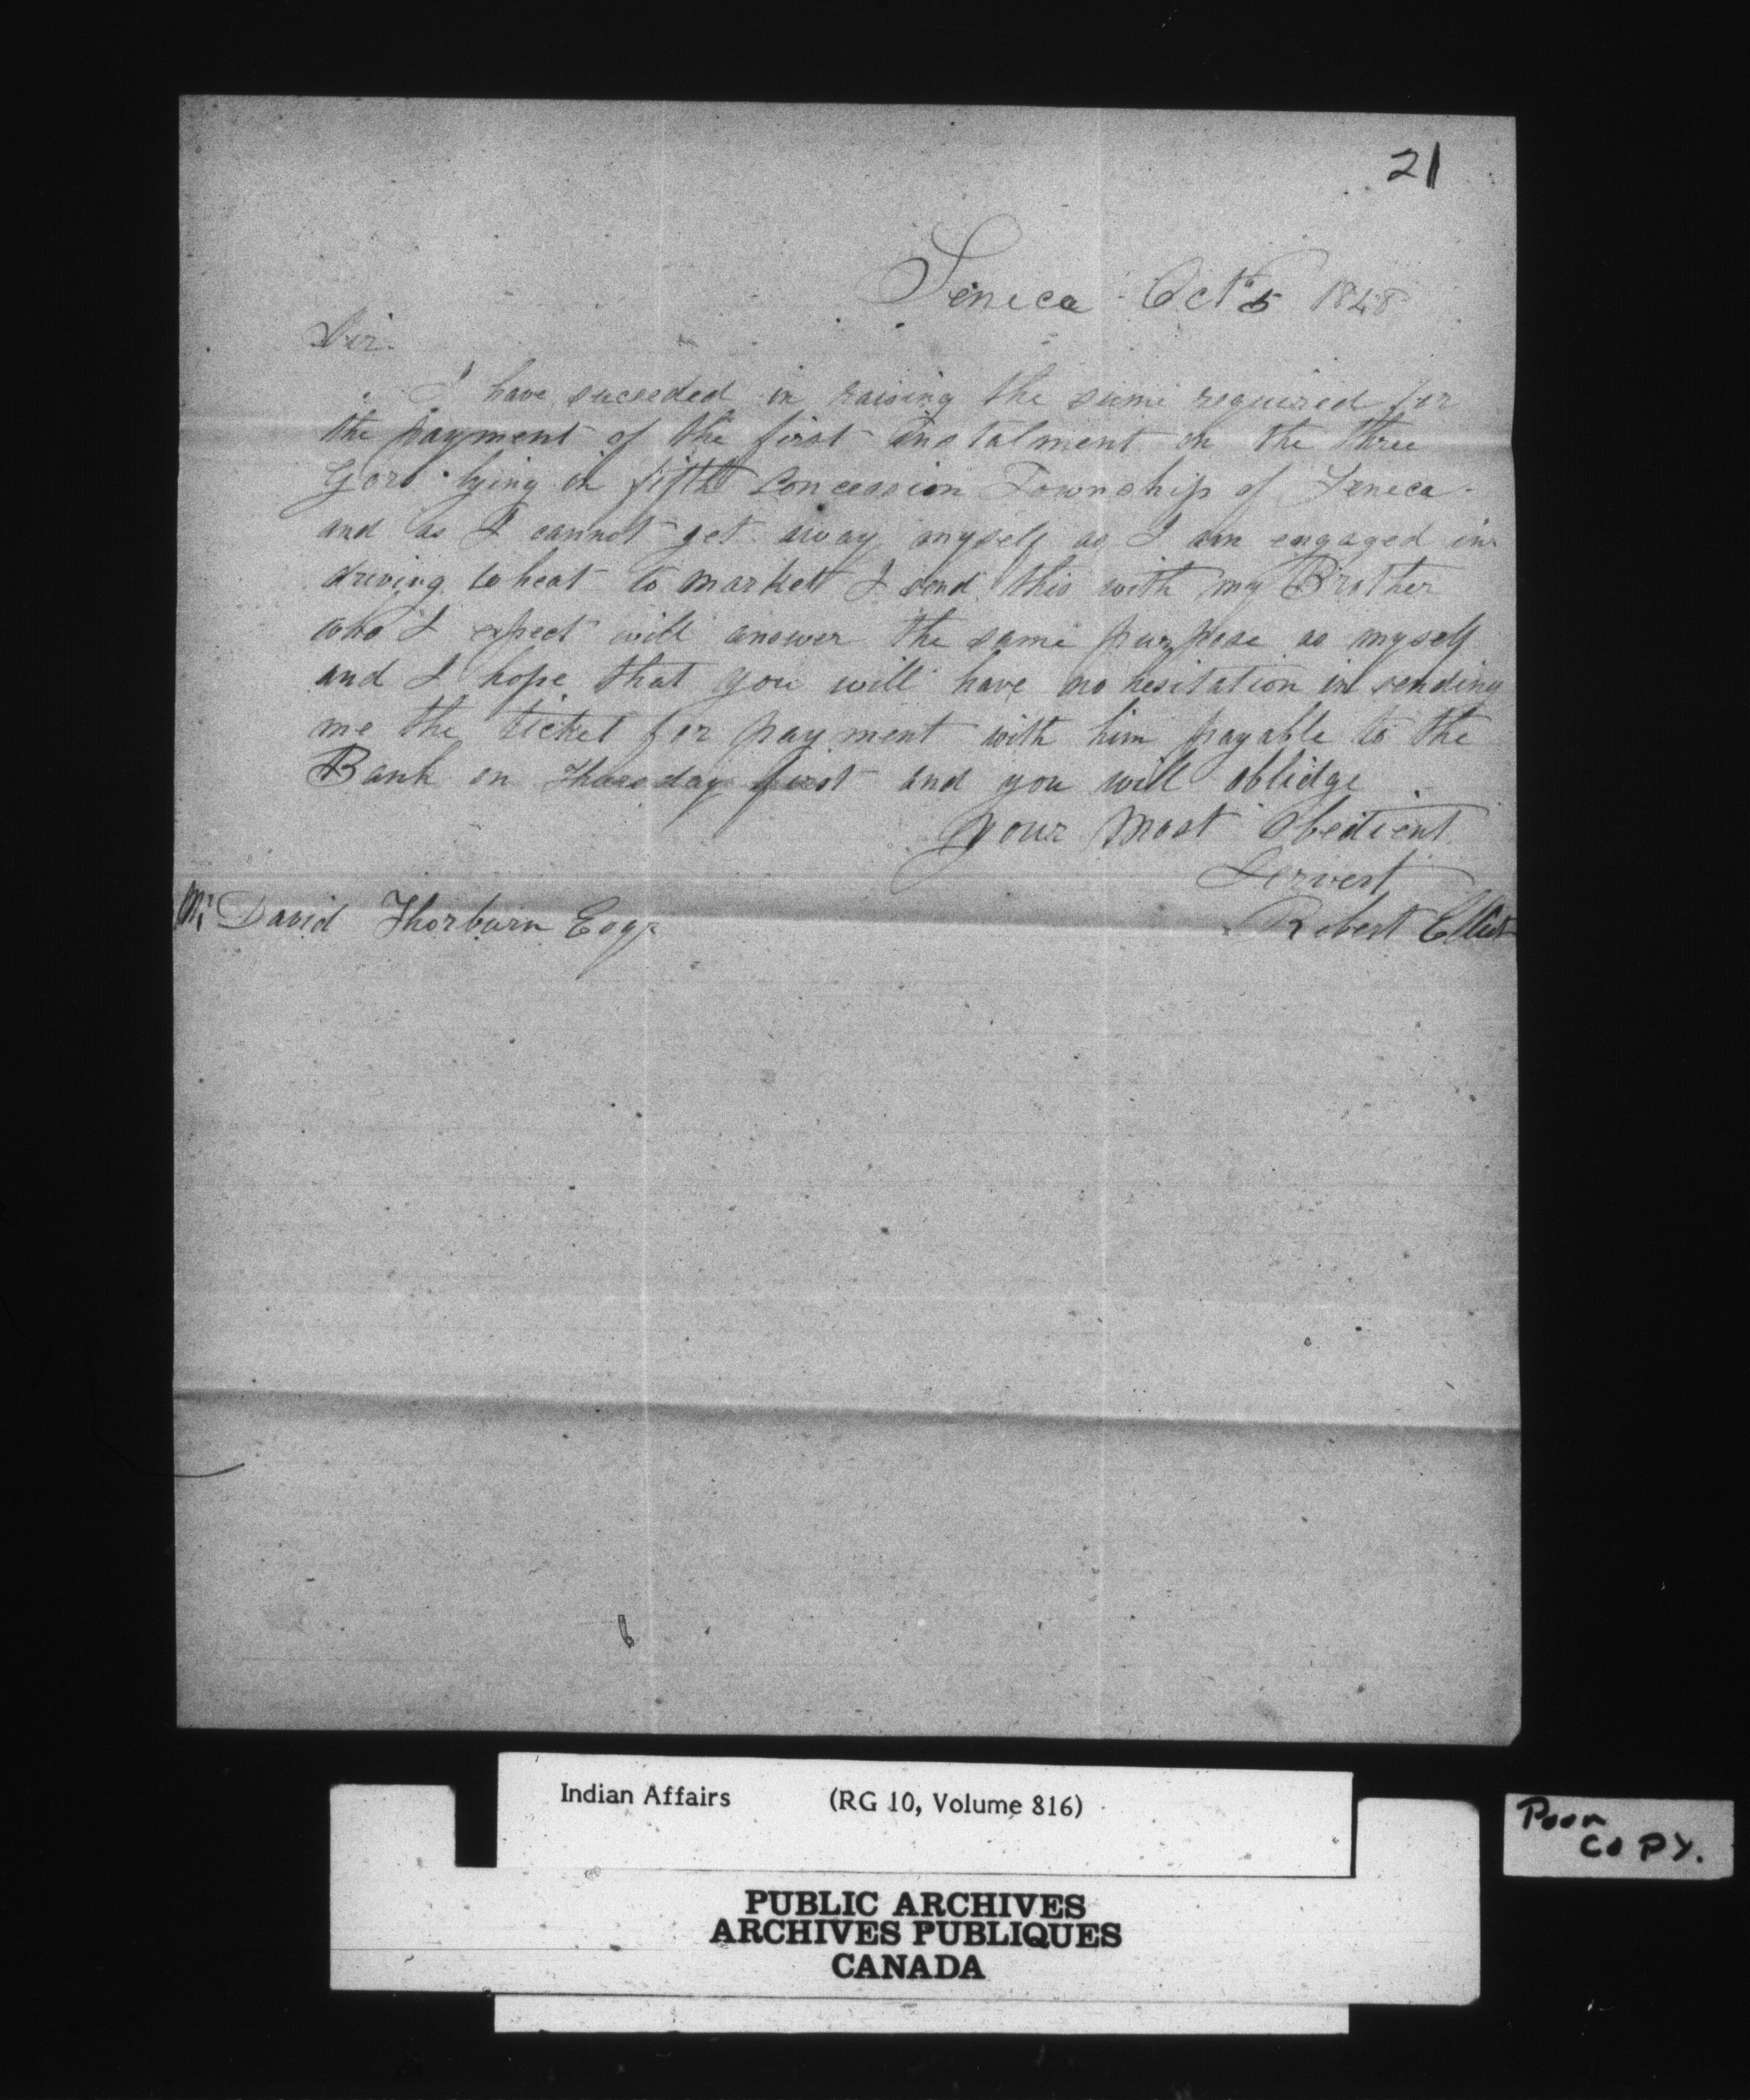 21
Seneca Oct 5 1848
Sir
I have succeded in raising the sume required for
the payment of the first instalment on the three
Gors lying in fifth Concession Township of Seneca
and as I cannot get away myself as I am engaged in
driving wheat to market I send this with my Brother
who I expect will answer the same purpose as myself
and I hope that you will have no hesitation in sending
me the ticket for payment with him payable to the
Bank on Thursday first and you will oblidge
your most obedient
Servent
Mr David Thorburn Esqr
Robert Elliot
Indian Affairs (RG 10, Volume 816)
Poor
COPY.
PUBLIC ARCHIVES
ARCHIVES PUBLIQUES
CANADA